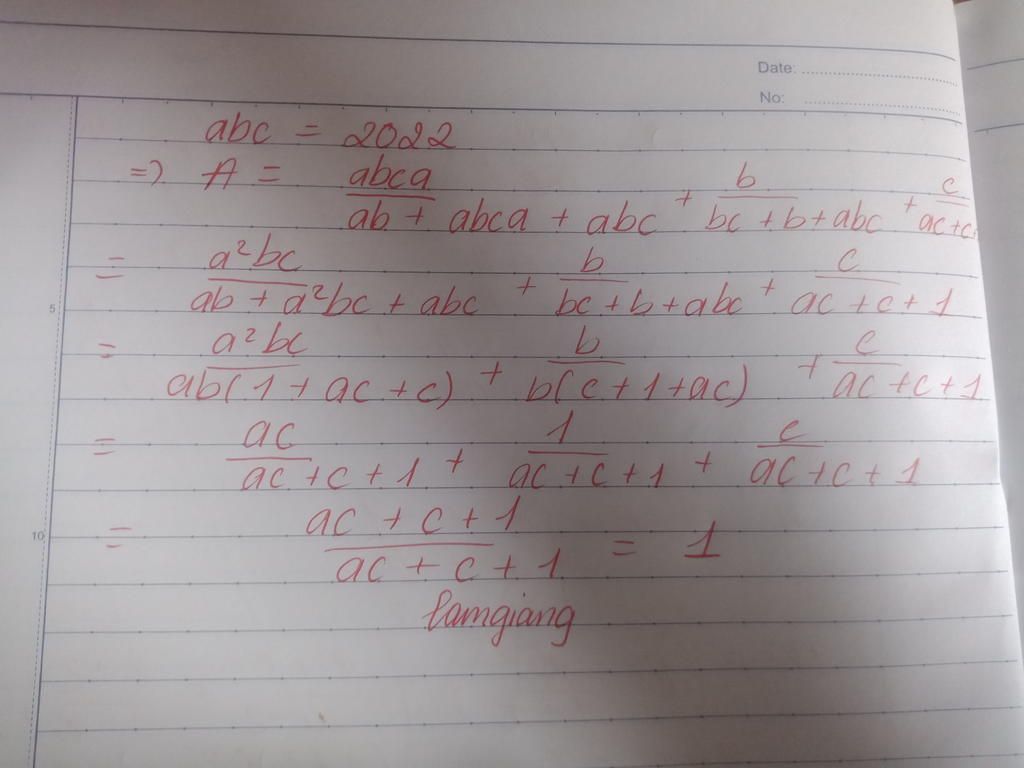 Date:
No:
abc = 2022
=) A = abca / ab + abca + abc + b / bc + b + abc + c / ac + c+
= a²bc / ab + a²bc + abc + b / bc + b + abc + c / ac + c + 1
5
= a²bc / ab(1 + ac + c) + b / b(c + 1 + ac) + c / ac + c + 1
= ac / ac + c + 1 + 1 / ac + c + 1 + c / ac + c + 1
10
= ac + c + 1 / ac + c + 1 = 1
lamgiang